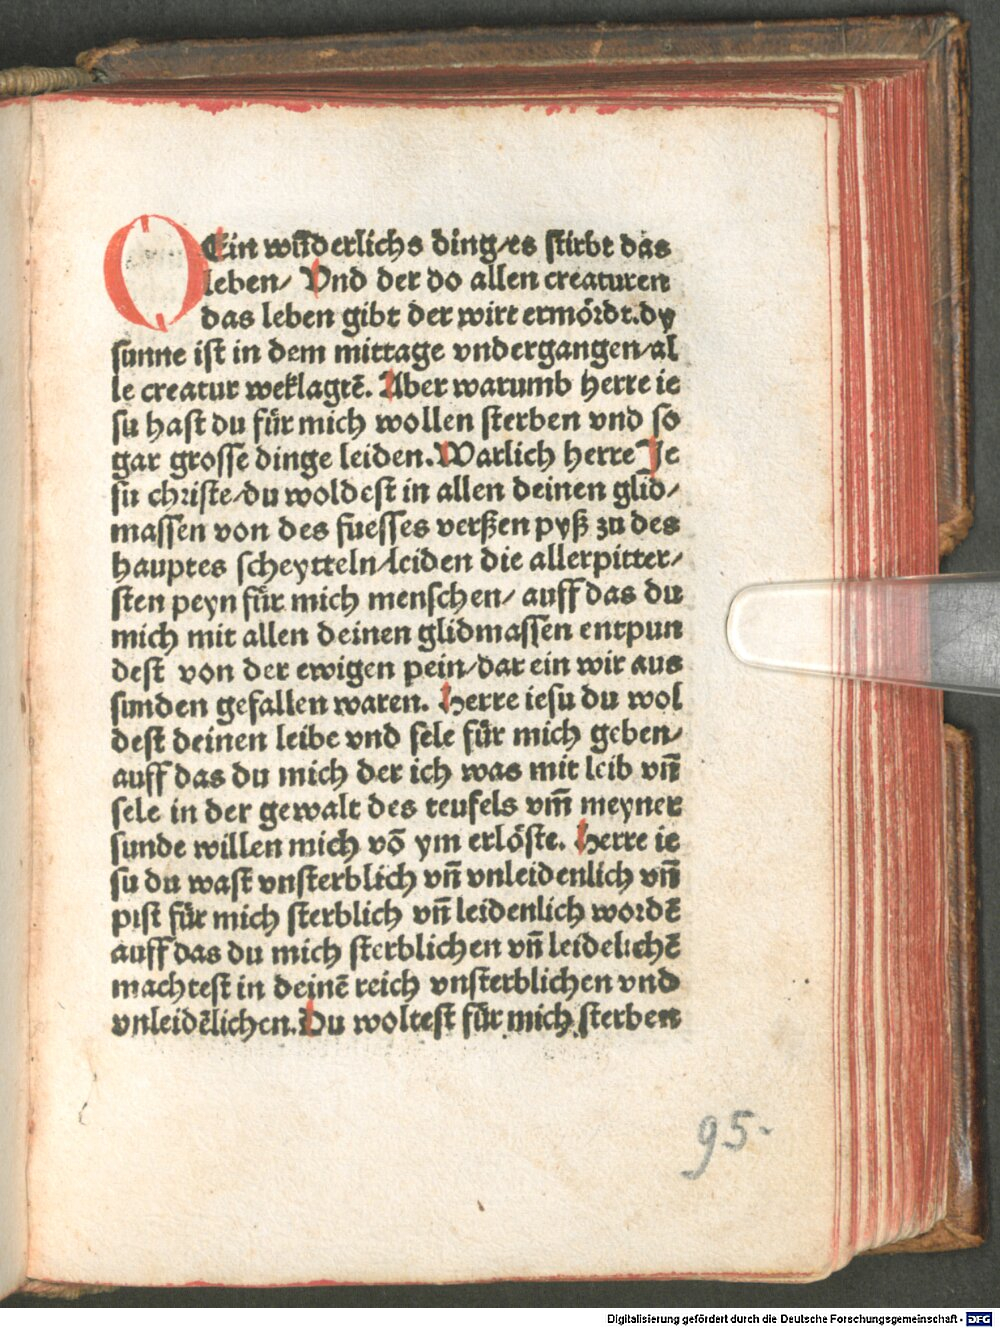 O Ein wũderlichs ding/es stirbt das
leben/ Vnd der do allen creaturen
das leben gibt der wirt ermördt.dy
sunne ist in dem mittage vndergangen/al
le creatur weklagtē. Aber warumb herre ie
su hast du für mich wollen sterben vnd so
gar grosse dinge leiden.Warlich herre Je
su christe/du woldest in allen deinen glid/
massen von des fuesses verßen pyß zu des
hauptes scheytteln/leiden die allerpitter/
sten peyn für mich menschen/ auff das du
mich mit allen deinen glidmassen entpun
dest von der ewigen pein/dar ein wir aus
sunden gefallen waren. Herre iesu du wol
dest deinen leibe vnd sele für mich geben/
auff das du mich der ich was mit leib vñ
sele in der gewalt des teufels vm̃ meyner
sunde willen mich võ ym erlöste. Herre ie
su du wast vnsterblich vñ vnleidenlich vñ
pist für mich sterblich vñ leidenlich wordē
auff das du mich sterblichen vñ leidelichē
machtest in deinē reich vnsterblichen vnd
vnleidēlichen.Du woltest für mich sterben
95.
Digitalisierung gefördert durch die Deutsche Forschungsgemeinschaft - DFG